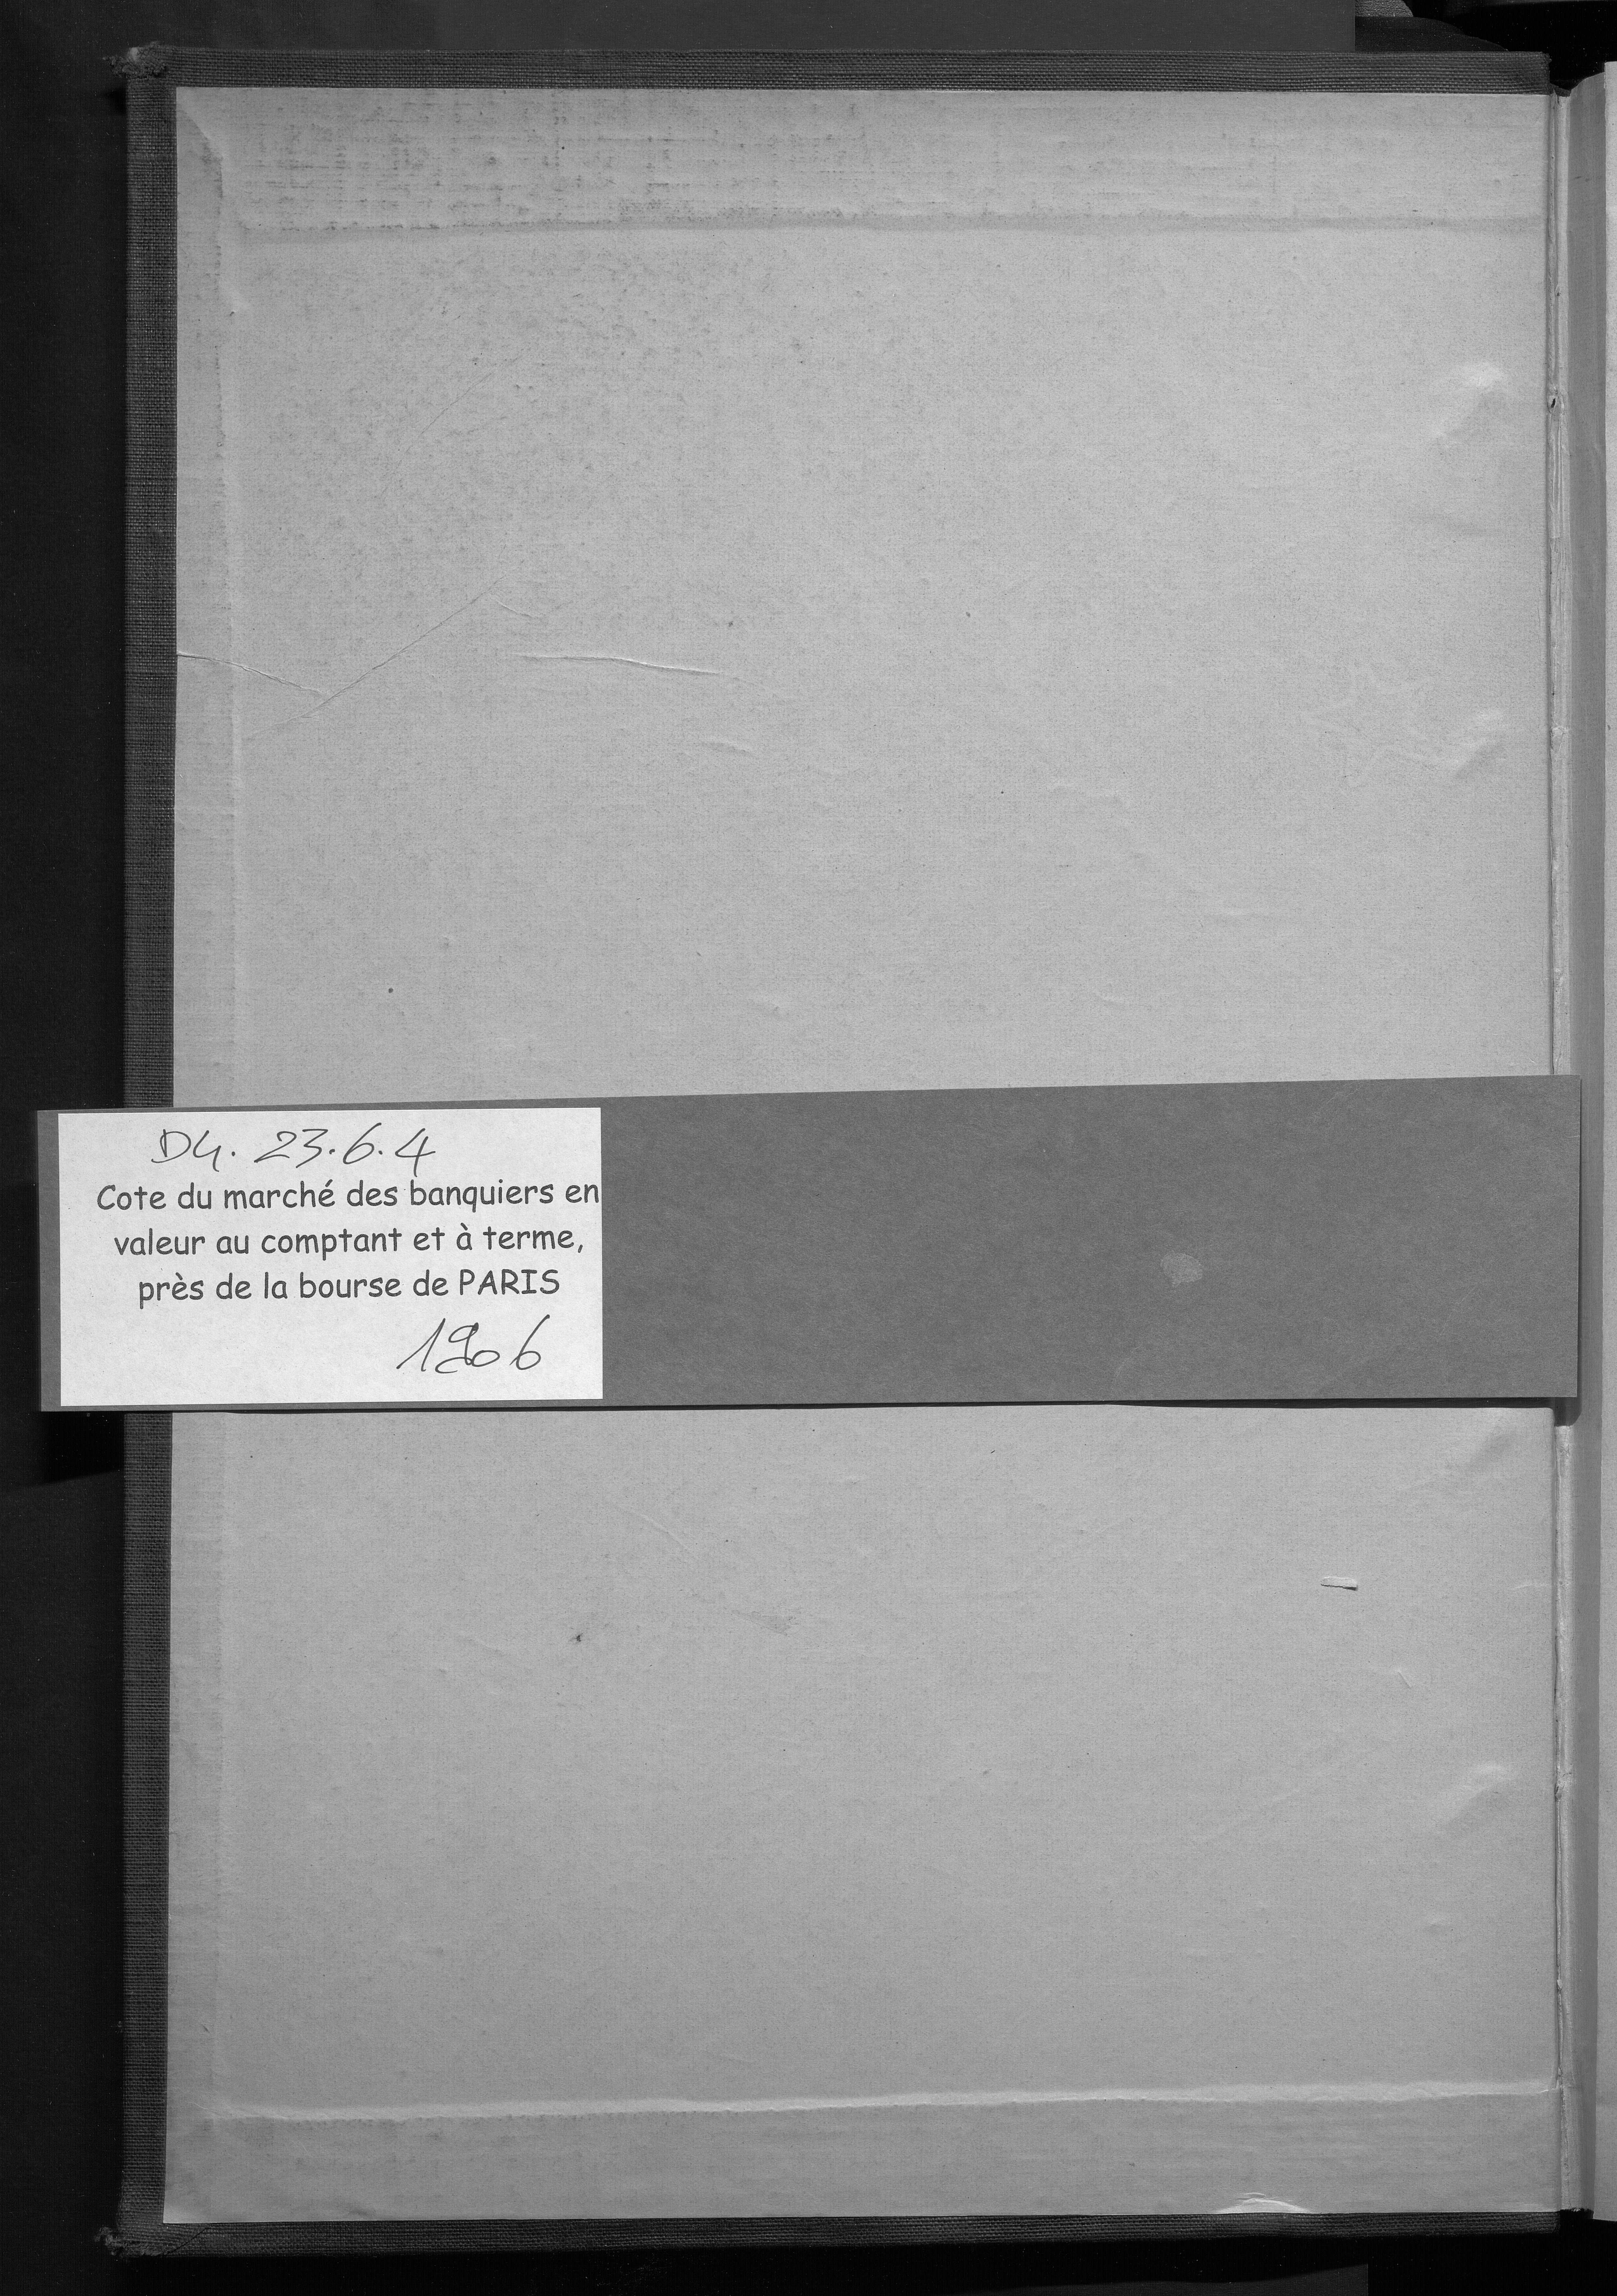 D4. 23.6.4
Cote du marché des banquiers en
valeur au comptant et à terme,
près de la bourse de PARIS
1906